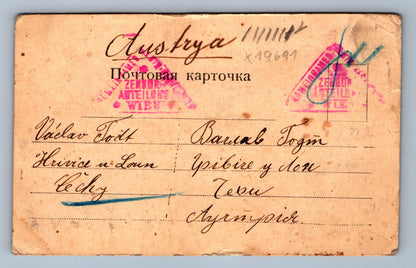 Austrya
X19691
Почтовая карточка
ZENSUR
ABTEILUNG
WIEN
ZENSUR
ABTEILU
WIEN
Václav Todt
Hrivice u Loun
Čechy
Вацлав Тодт
Гривіце у Лон
Чехи
Аустрия